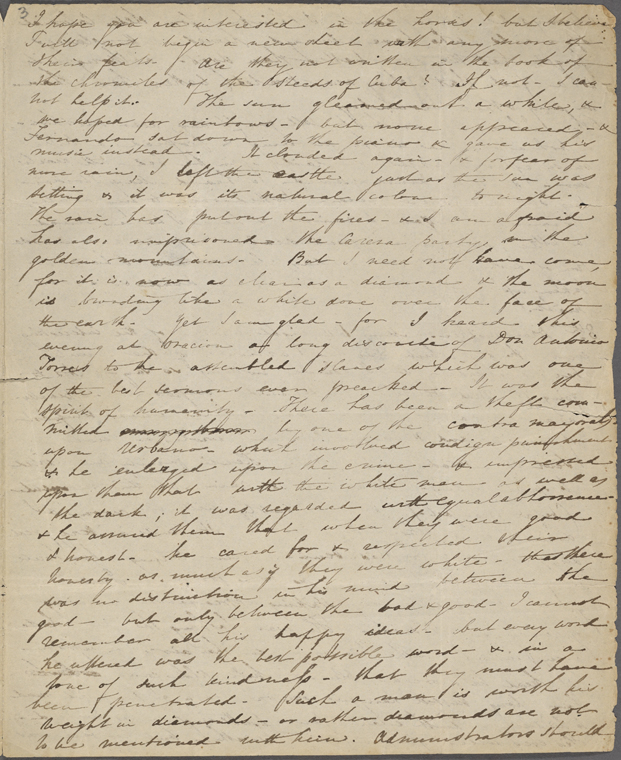 3
I hope you are interested in the horses! but I believe
I will not begin a new sheet with any more of
their feats. Are they not written in the book of
the chronicles of the Steeds of Cuba? If not - I can-
not help it. The sun gleamed out a while, &
we hoped for rainbows - but none appeared - &
Fernando sat down to the piano & gave us his
music instead. It clouded again - & for fear of
more rain, I left the castle just as the sun was
setting & it was its natural colour to night.
The rain has put out the fires - & I am afraid
has also imprisoned the party, in the
golden mountains. But I need not have come,
for it is now as clear as a diamond & the moon
is brooding like a white dove over the face of
the earth. Yet I am glad - for I heard this
evening at oracion a long discourse of Don Antonio
Torres to the assembled slaves which was one
of the best sermons ever preached - It was the
spirit of humanity - There has been a theft com-
mitted by one of the contra mayorals
upon Urbano - which involved condign punishment
& he enlarged upon the crime - & impressed
upon them that with the white man as well as
the dark, it was regarded with equal abhorrence -
& he assured them that when they were good
& honest - he cared for & respected their
honesty as much as if they were white - that there
was no distinction in his mind between the
good - but only between the bad & good - I cannot
remember all his happy ideas - but every word
he uttered was the best possible word - & in a
tone of such kindness - that they must have
been penetrated - Such a man is worth his
weight in diamonds - or rather diamonds are not
to be mentioned with him. Administrators should